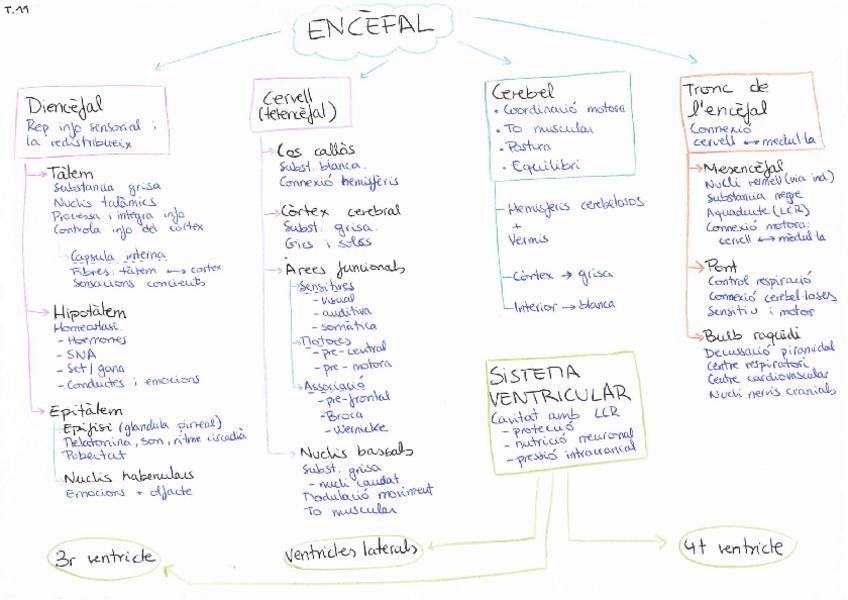 T.11
ENCÈFAL
Diencèfal
Rep info sensorial i
la redistribueix
Tàlem
Substancia grisa
Nuclis talàmics
Processa i integra info
Controla info del còrtex
Capsula interna
Fibres: tàlem ↔ cortex
Sensacions conscients
Hipotàlem
Homeostasi.
- Hormones
- SNA
- Set/gana
- Conductes i emocions
Epitàlem
Epífisi (glandula pineal)
Melatonina, son, ritme circadià
Pubertat
Nuclis habenulars
Emocions + olfacte
Cervell
(telencèfal)
Cos callòs
Subst. blanca.
Connexió hemisferis
Còrtex cerebral
Subst. grisa.
Girs i solcs
Àrees funcionals
Sensitives
- visual
- auditiva
- somàtica
Motores
- pre-central
- pre-motora
Associació
- pre-frontal
- Broca
- Wernicke
Nuclis bassals
Subst. grisa
- nucli caudat
Modulació moviment
To muscular
Cerebel
• Coordinació motora
• To muscular
• Postura
• Equilibri
Hemisferis cerebelosos
+
Vermis
Còrtex → grisa
Interior → blanca
SISTEMA
VENTRICULAR
Cavitat amb LCR
- protecció
- nutrició neuronal
- pressió intracranial
Tronc de
l'encèfal
Connexió
cervell ↔ medul·la
Mesencèfal
Nucli vermell (via ind)
Substancia negre
Aqüaducte (LCR)
Connexió motora:
cervell ↔ mèdul·la
Pont
Control respiració
Connexió cerebel·loses
Sensitiu i motor
Bulb raquidi
Decussació piramidal
Centre respiratori
Centre cardiovascular
Nucli nervis cranials
3r ventricle
Ventricles laterals
4t ventricle